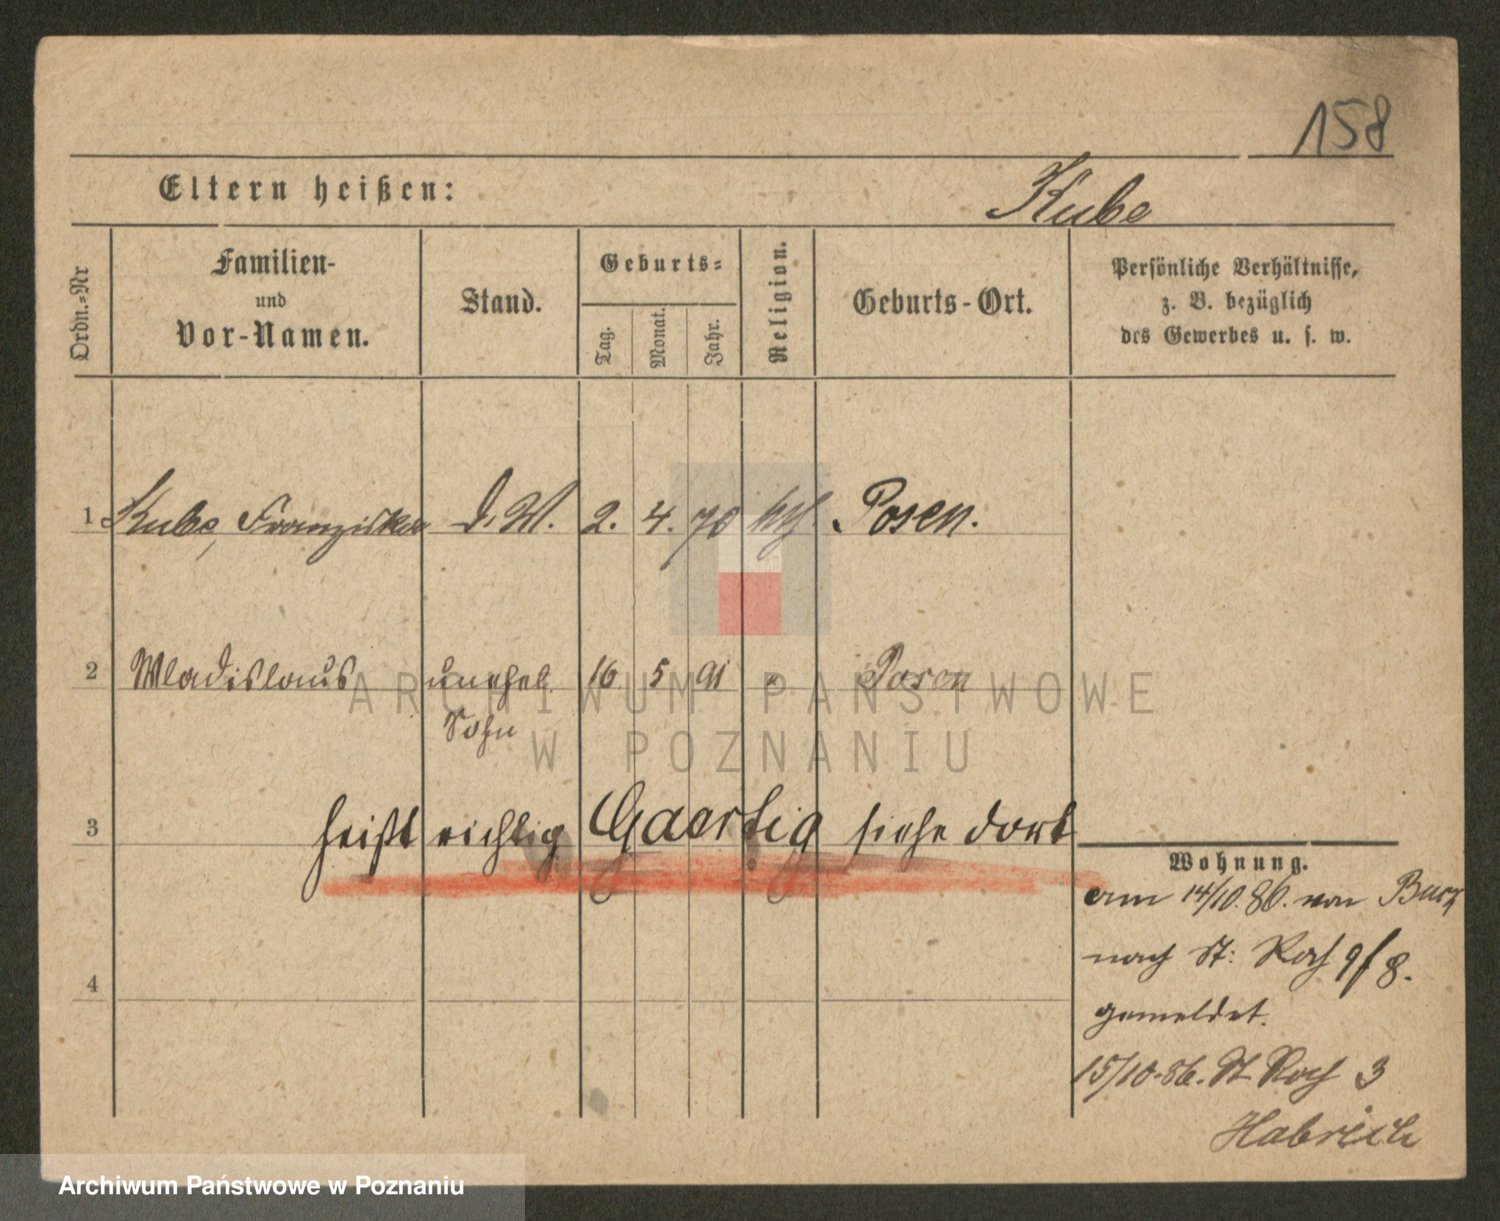 158
Eltern heißen:
Kube
Ordn.-Nr
Familien-
und
Vor-Namen.
Stand.
Geburts-
Tag.
Monat.
Jahr.
Religion.
Geburts-Ort.
Persönliche Verhältnisse,
z. B. bezüglich
des Gewerbes u. s. w.
1 Kube, Franziska D. W. 2. 4. 70 kth Posen.
2 Wladislaus unehel. 16 5 91 " Posen
Sohn
ARCHIWUM PAŃSTWOWE
W POZNANIU
3 heißt richtig Gaertig siehe dort
Wohnung.
am 14/10.86. von
nach St: Roch 9 f 8.
gemeldet.
4
15/10.86. St Roch 3
Habrich
Archiwum Państwowe w Poznaniu